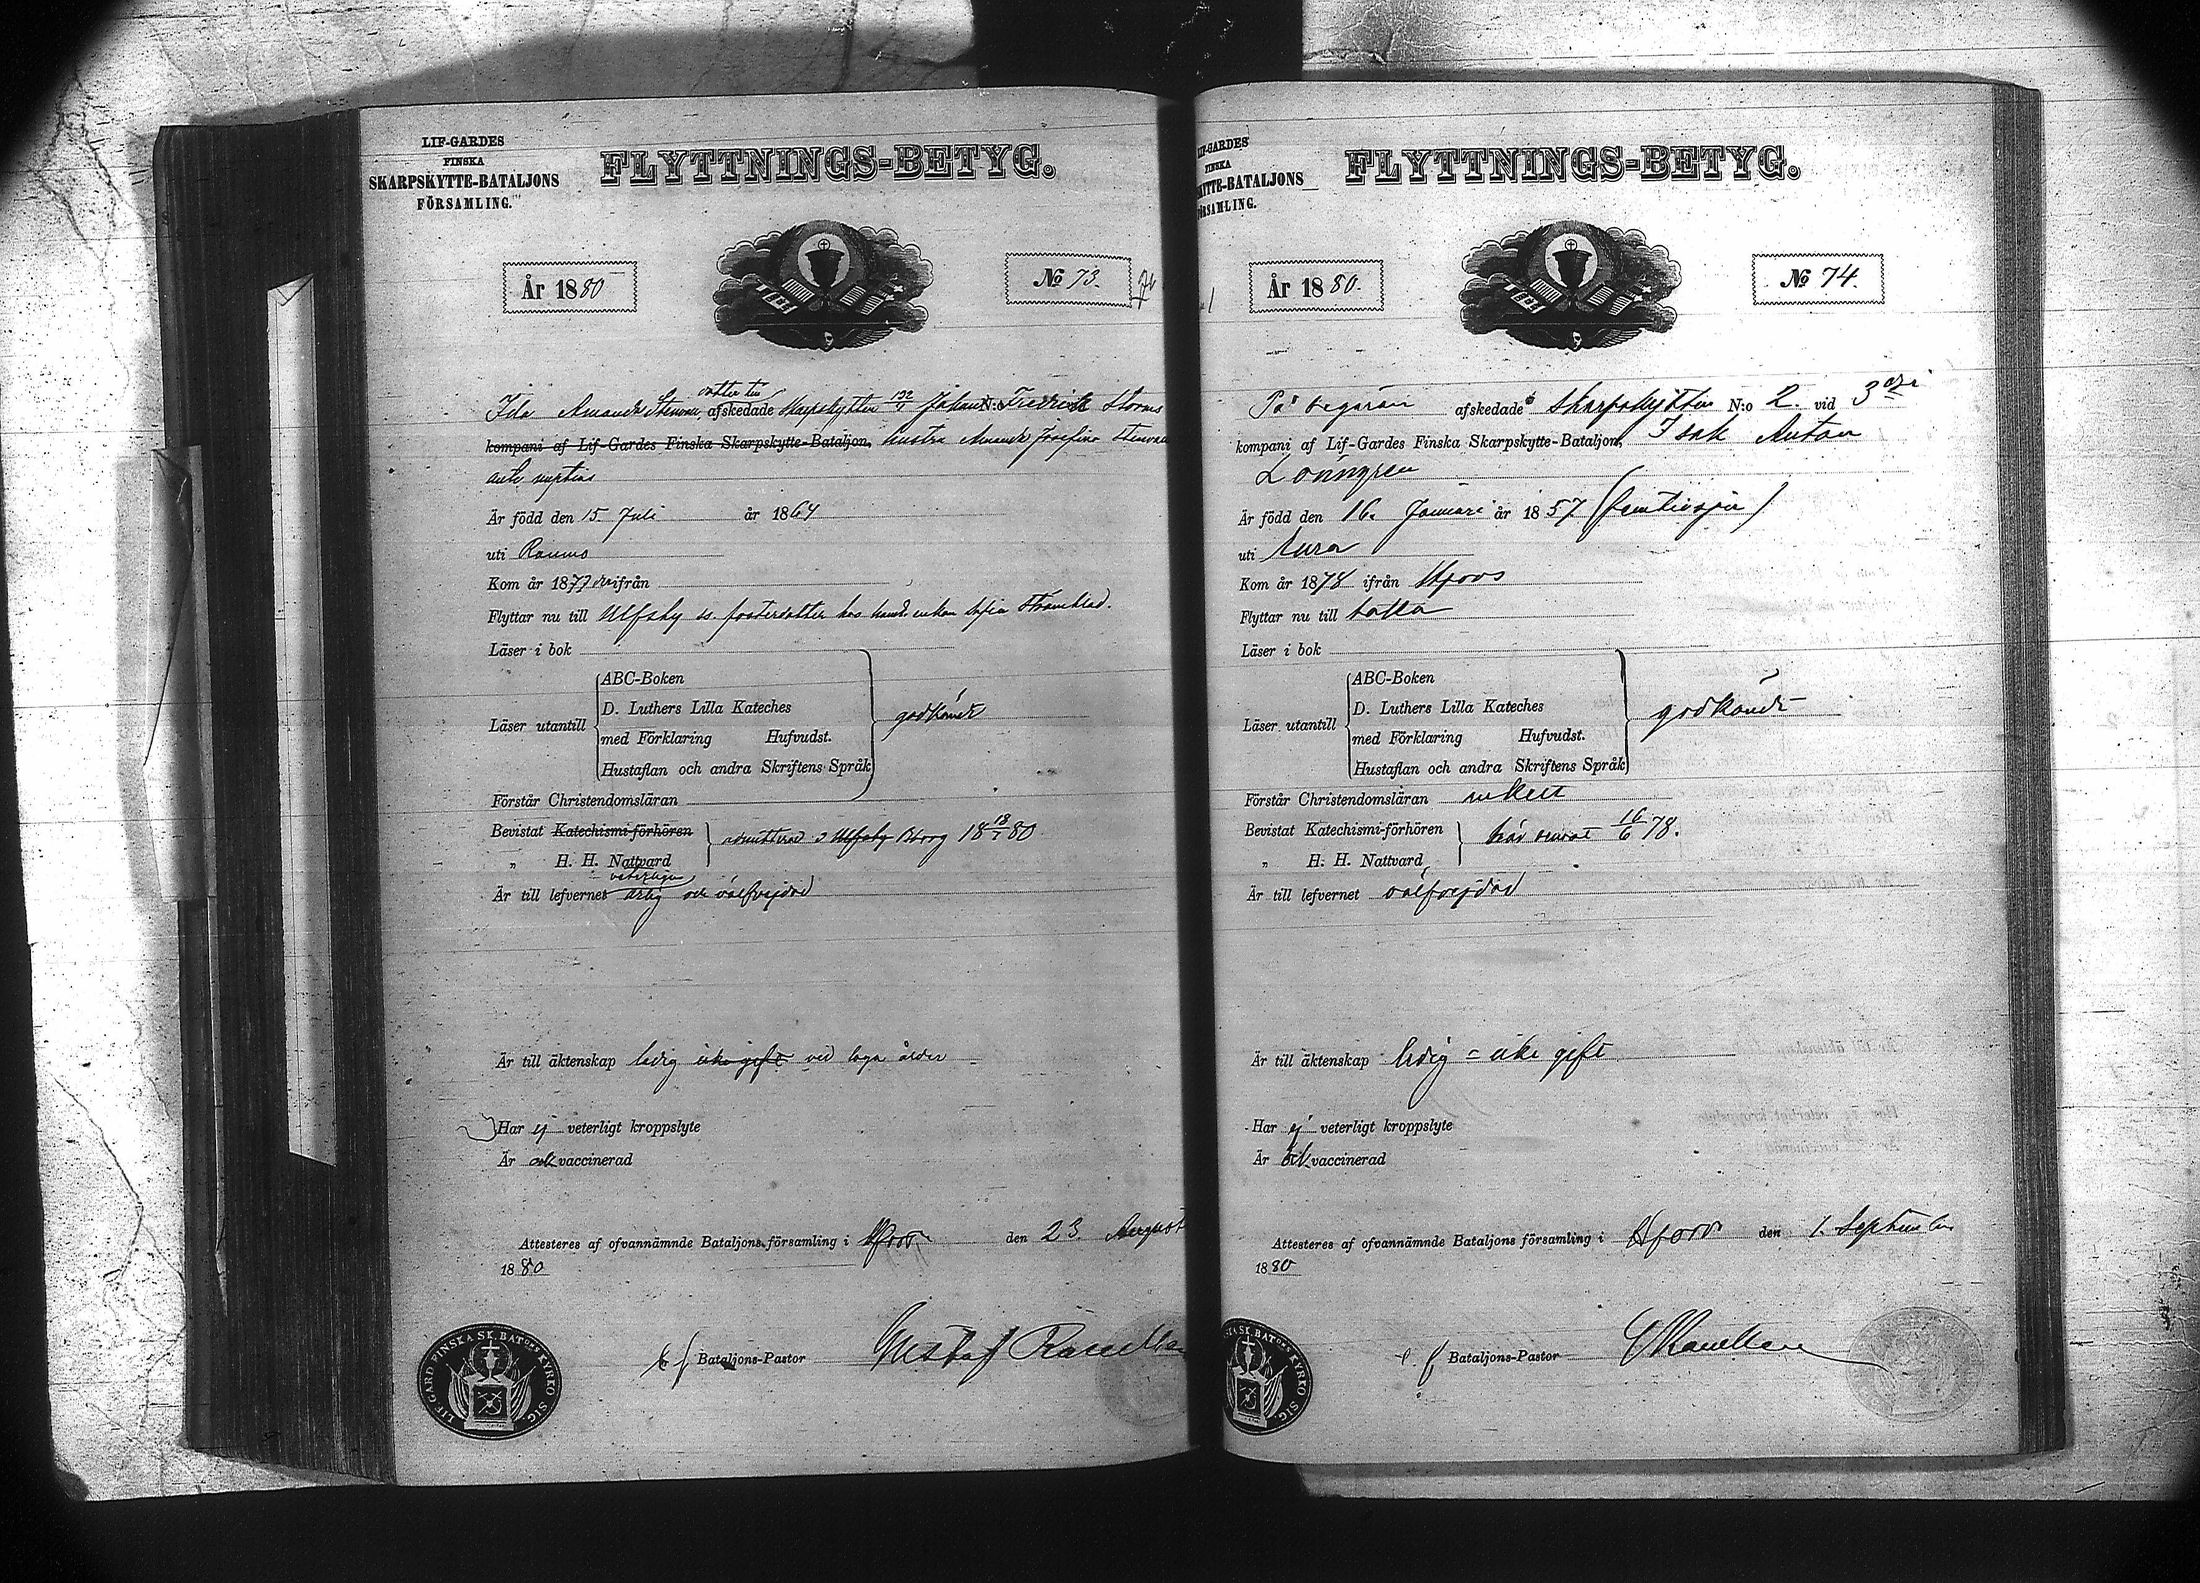 LIF-GARDES
FINSKA
SKARPSKYTTE-BATALJONS
FÖRSAMLING.
FLYTTNINGS-BETYG.
År 1880
No 73.
Ida Amanda Stenvall dotter till afskedade Skarpskytten 132/1 Johan N:o Fredrik Storms
kompani af Lif-Gardes Finska Skarpskytte-Bataljon, hustru Amanda Josefina
ante nuptias
Är född den 15. Juli år 1864
uti Raumo
Kom år 1877 ifrån
Flyttar nu till Ulfsby ss. fosterdotter hos enkan Sofia Strömblad.
Läser i bok
Läser utantill
ABC-Boken
D. Luthers Lilla Kateches
med Förklaring Hufvudst.
Hustaflan och andra Skriftens Språk
godkändt
Förstår Christendomsläran
Bevistat Katechismi-förhören
admitterad i Ulfsby 18 18/7 80
„ H. H. Nattvard
Är till lefvernet veterligen ärlig och välfrejdad
Är till äktenskap ledig icke gift vid laga ålder
Har ej veterligt kroppslyte
Är ock vaccinerad
Attesteres af ofvannämnde Bataljons församling i Hfors den 23. August
1880
e f Bataljons-Pastor Gustaf
LIF GARD FINSKA SK. BAT:ONS KYRKO SIG.
LIF-GARDES
FINSKA
SKYTTE-BATALJONS
FÖRSAMLING.
FLYTTNINGS-BETYG.
År 1880.
No 74.
På begäran afskedade Skarpskytten N:o 2. vid 3dje
kompani af Lif-Gardes Finska Skarpskytte-Bataljon, Isak Anton
Lönngren
Är född den 16. Januari år 1857 (femtiosju)
uti Eura
Kom år 1878 ifrån Hfors
Flyttar nu till
Läser i bok
Läser utantill
ABC-Boken
D. Luthers Lilla Kateches
med Förklaring Hufvudst.
Hustaflan och andra Skriftens Språk
godkändt
Förstår Christendomsläran enkelt
Bevistat Katechismi-förhören
här senast 16/6 78.
„ H. H. Nattvard
Är till lefvernet välfrejdad
Är till äktenskap ledig = icke gift
Har ej veterligt kroppslyte
Är ock vaccinerad
Attesteres af ofvannämnde Bataljons församling i Hfors den 1. September
1880
e f Bataljons-Pastor
SK. BAT:ONS KYRKO SIG.